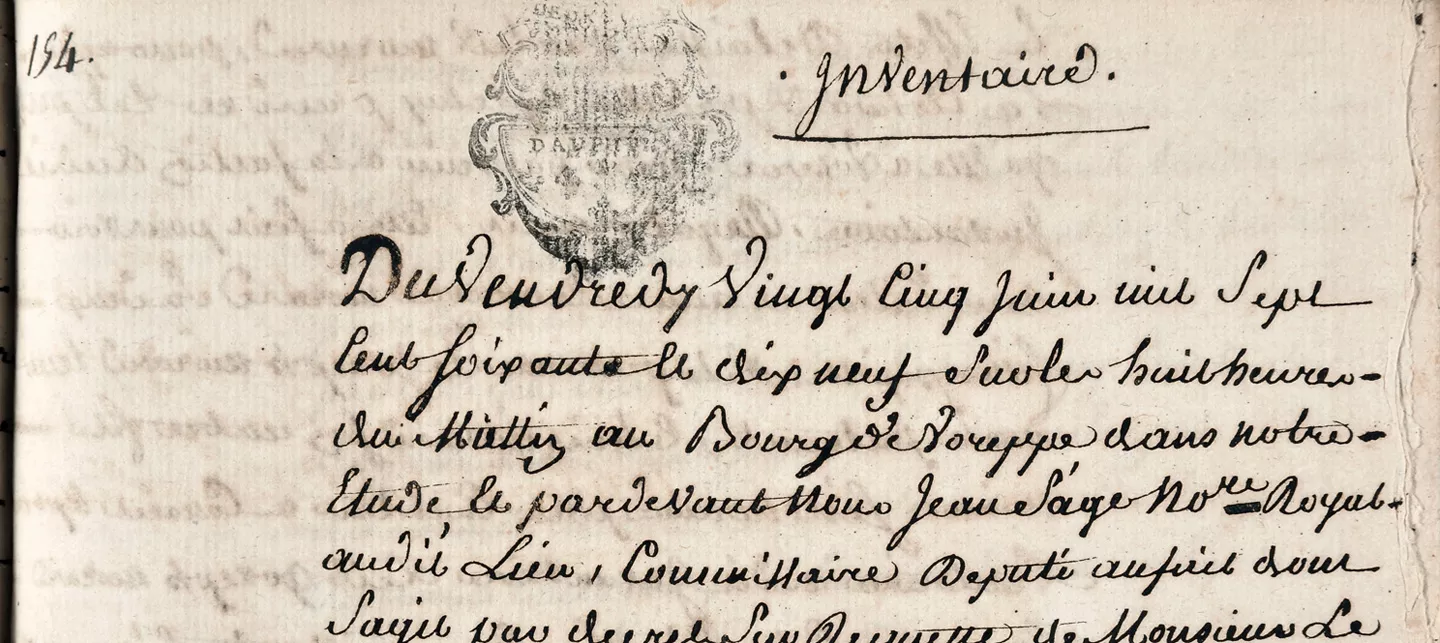 154.
DAUPHINE
Inventaire.
Du Vendredy Vingt Cinq Juin mil Sept
Cent soixante et dix neuf Sur les huit heures
du Mattin au Bourg de Voreppe dans notre
Etude et pardevant Nous Jean Sage Nore Royal
audit Lieu, Commissaire Deputé aufait dont
Sagit par decret Sur Requette de Monsieur Le